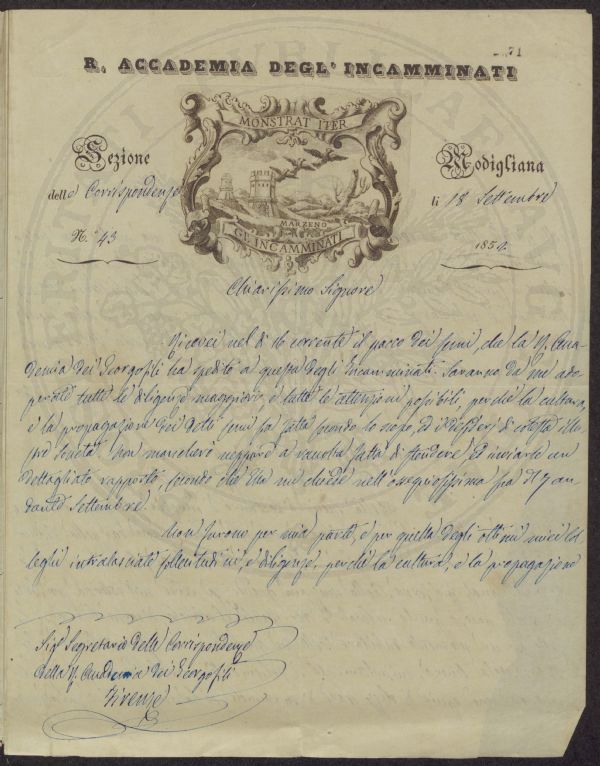 71
R. ACCADEMIA DEGL' INCAMMINATI
MONSTRAT ITER
Sezione
delle Corrispondenze
N.° 43
MARZENO
GL' INCAMMINATI
Modigliana
li 18 Settembre
185
Chiarissimo Signore
Ricevei nel dì 16 corrente il pacco dei semi, che la R. Acca-
demia dei Georgofili ha spedito a questa degli Incamminati. Saranno da me ado-
perate tutte le diligenze maggiori, e tutte le attenzioni possibili, perchè la cultura,
e la propagazione dei detti semi sia fatta secondo lo scopo, ed i desideri di cotesta illu-
stre Società. Non mancherò neppure a raccolta fatta di stendere ed inviarle un
dettagliato rapporto, secondo che Ella mi chiede nell' ossequiosissima sua del 7 an-
dante Settembre.
Non furono per mia parte, e per quella degli ottimi miei Col-
leghi intralasciate sollecitudini, e diligenze, perchè la cultura, e la propagazione
Sig.e Segretario delle Corrispondenze
della R. Accademia dei Georgofili
Firenze